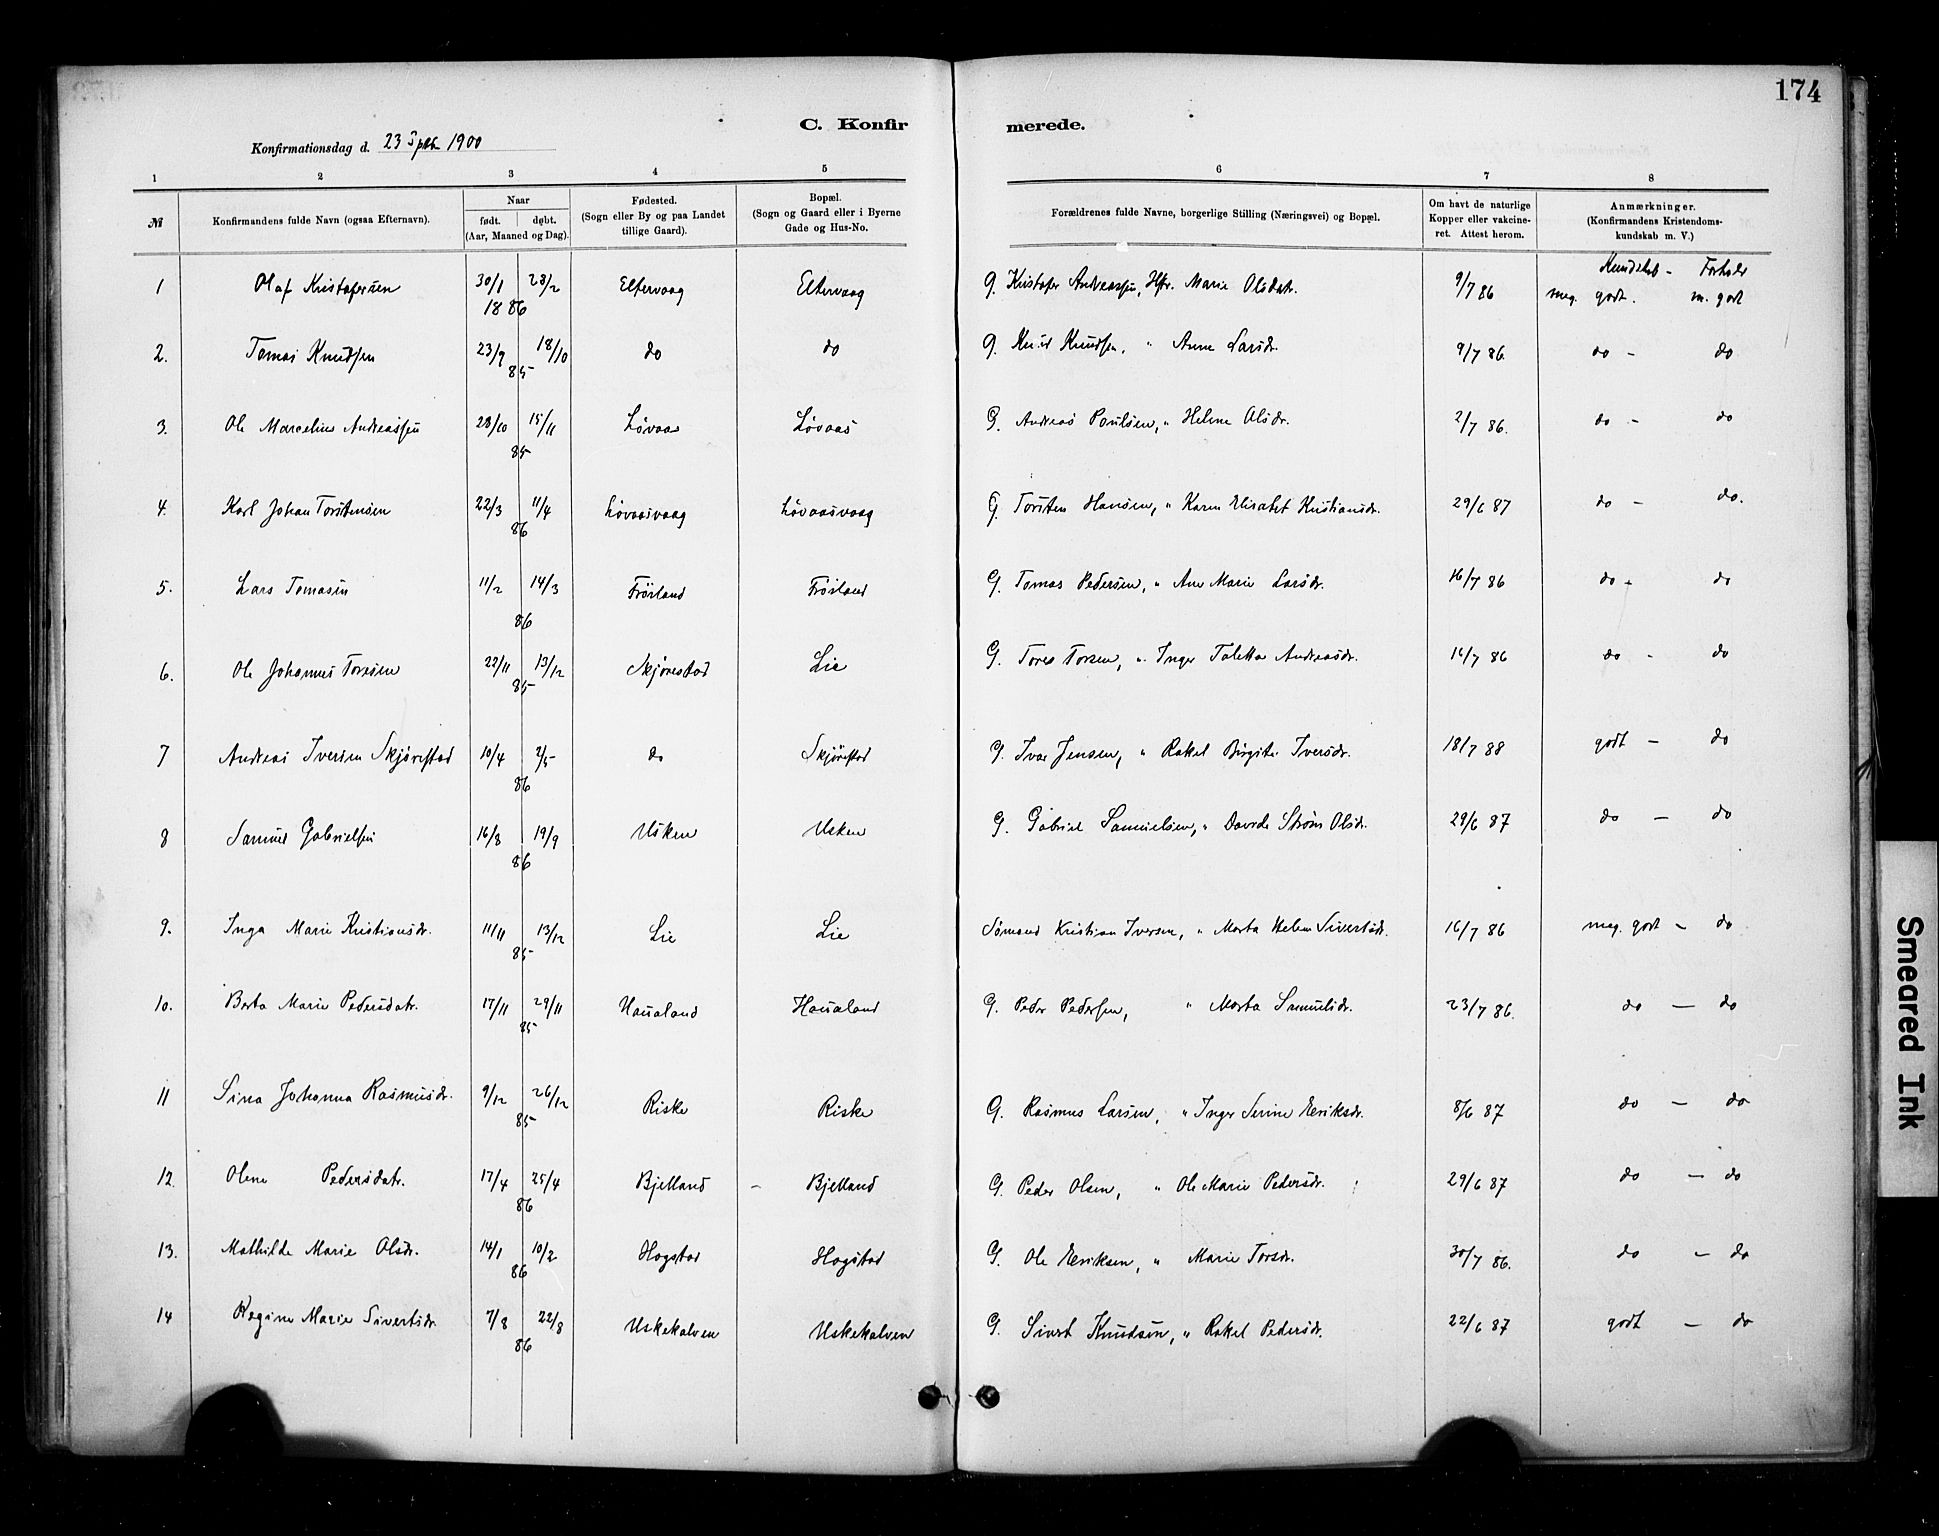 174
C. Konfirmerede.
Konfirmationsdag d. 23 Sptb 1900
1 2 3 4 5 6 7 8
№ Konfirmandens fulde Navn (ogsaa Efternavn). Naar født. døbt. (Aar, Maaned og Dag). Fødested. (Sogn eller By og paa Landet tillige Gaard). Bopæl. (Sogn og Gaard eller i Byerne Gade og Hus-No. Forældrenes fulde Navne, borgerlige Stilling (Næringsvei) og Bopæl. Om havt de naturlige Kopper eller vakcineret. Attest herom. Anmærkninger. (Konfirmandens Kristendomskundskab m. V.)
Kundskab - Forhold
1 Olaf Kristofersen 30/1 28/2 1886 Eltervaag Eltervaag G. Kristofer Andreassen, Hstr. Marie Olsdatr. 9/7 86 meg. godt. m. godt
2. Tomas Knudsen 23/9 18/10 85 do do G. Knud Knudsen, " Anne Larsdr. 9/7 86. do - do
3. Ole Marcelius Andreassen 28/10 15/11 85 Løvaas Løvaas G. Andreas Poulsen, " Helene Olsdr. 2/7 86. do - do
4. Karl Johan Torstensen 22/3 11/4 86 Løvaasvaag Løvaasvaag G. Torsten Hansen, " Karen Elisabet Kristiansdr. 29/6 87 do - do.
5. Lars Tomasen 11/2 14/3 86 Frøiland Frøiland G. Tomas Pedersen, " Ane Marie Larsdr. 16/7 86 do - do
6. Ole Johannes Toresen 22/11 13/12 85 Skjørestad Lie G. Tores Torsen, " Inger Taletta Andreasdr. 16/7 86 do - do
7 Andreas Iversen Skjørestad 10/4 2/5 86 do Skjørestad G. Ivar Jensen, " Rakel Birgite Iversdr. 18/7 88 godt - do
8 Samuel Gabrielsen 16/8 19/9 86 Usken Usken G. Gabriel Samuelsen, " Davida Strøm Olsdr. 29/6 87 do - do
9. Inga Marie Kristiansdr. 11/11 13/12 85 Lie Lie Sømand Kristian Iversen, " Marta Helene Sivertsdr. 16/7 86 meg. godt - do
10. Berta Marie Pedersdatr. 17/11 29/11 85 Haualand Haualand G. Peder Pedersen, " Marta Samuelsdr. 23/7 86. do - do
11 Sina Johanna Rasmusdr. 9/12 26/12 85 Riske Riske G. Rasmus Larsen, " Inger Serine Eeriksdr. 8/6 87 do - do
12. Olene Pedersdatr. 17/4 25/4 86 Bjelland - Bjelland G. Peder Olsen, " Ole Marie Pedersdr. 29/6 87 do - do
13. Mathilde Marie Olsdr. 14/1 10/2 86 Hogstad Hogstad G. Ole Eeriksen, " Marie Torsdr. 30/7 86. do - do
14 Regine Marie Sivertsdr. 7/8 22/8 86 Uskekalven Uskekalven G. Sivert Knudsen, " Rakel Pedersdr. 22/6 87 godt - do
Smeared Ink